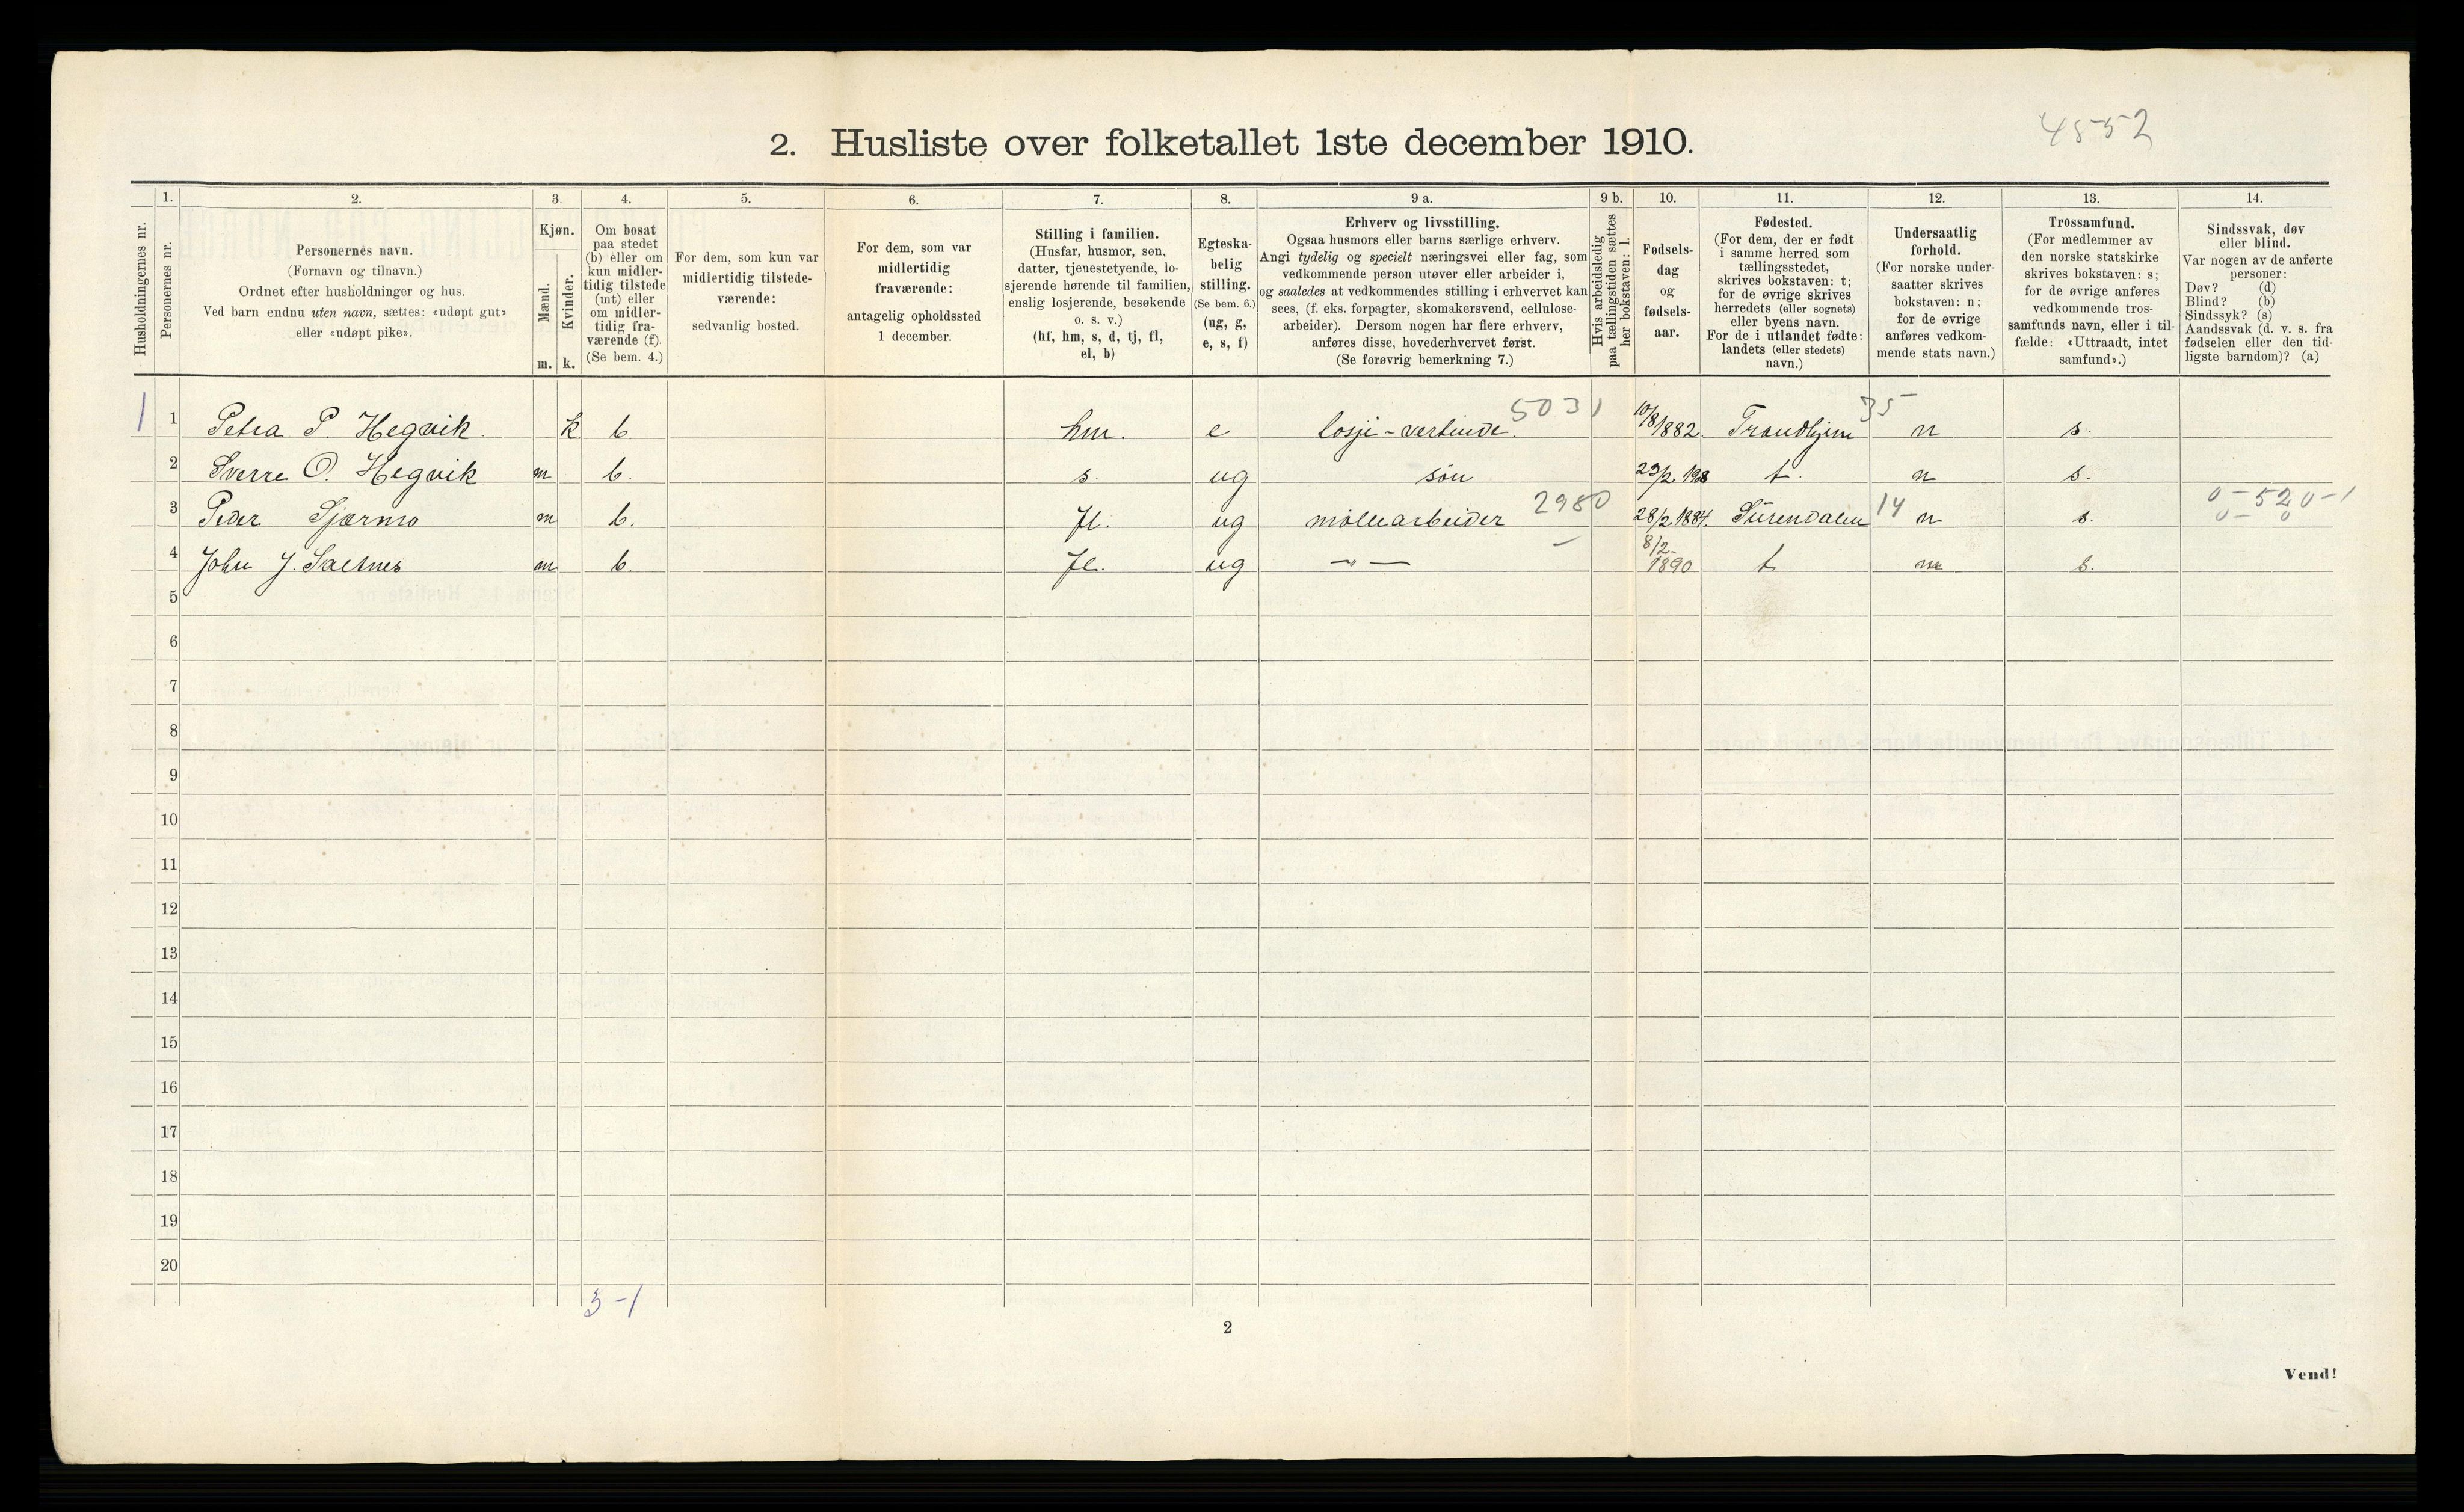 4552
2. Husliste over folketallet 1ste december 1910.
Husholdningernes nr.
1.
Personernes nr.
2.
Personernes navn.
(Fornavn og tilnavn.)
Ordnet efter husholdninger og hus.
Ved barn endnu uten navn, sættes: «udøpt gut»
eller «udøpt pike».
3.
Kjøn.
Mænd.
Kvinder.
m. k.
4.
Om bosat
paa stedet
(b) eller om
kun midler-
tidig tilstede
(mt) eller
om midler-
tidig fra-
værende (f).
(Se bem. 4.)
5.
For dem, som kun var
midlertidig tilstede-
værende:
sedvanlig bosted.
6.
For dem, som var
midlertidig
fraværende:
antagelig opholdssted
1 december.
7.
Stilling i familien.
(Husfar, husmor, søn,
datter, tjenestetyende, lo-
sjerende hørende til familien,
enslig losjerende, besøkende
o. s. v.)
(hf, hm, s, d, tj, fl,
el, b)
8.
Egteska-
belig
stilling.
(Se bem. 6.)
(ug, g,
e, s, f)
9 a.
Erhverv og livsstilling.
Ogsaa husmors eller barns særlige erhverv.
Angi tydelig og specielt næringsvei eller fag, som
vedkommende person utøver eller arbeider i,
og saaledes at vedkommendes stilling i erhvervet kan
sees, (f. eks. forpagter, skomakersvend, cellulose-
arbeider). Dersom nogen har flere erhverv,
anføres disse, hovederhvervet først.
(Se forøvrig bemerkning 7.)
9 b.
Hvis arbeidsledig
paa tællingstiden sættes
her bokstaven: l.
10.
Fødsels-
dag
og
fødsels-
aar.
11.
Fødested.
(For dem, der er født
i samme herred som
tællingsstedet,
skrives bokstaven: t;
for de øvrige skrives
herredets (eller sognets)
eller byens navn.
For de i utlandet fødte:
landets (eller stedets)
navn.)
12.
Undersaatlig
forhold.
(For norske under-
saatter skrives
bokstaven: n;
for de øvrige
anføres vedkom-
mende stats navn.)
13.
Trossamfund.
(For medlemmer av
den norske statskirke
skrives bokstaven: s;
for de øvrige anføres
vedkommende tros-
samfunds navn, eller i til-
fælde: «Uttraadt, intet
samfund».)
14.
Sindssvak, døv
eller blind.
Var nogen av de anførte
personer:
Døv? (d)
Blind? (b)
Sindssyk? (s)
Aandssvak (d. v. s. fra
fødselen eller den tid-
ligste barndom)? (a)
1 1 Petra P. Hegvik. k b. hm. e losji-vertinde. 5031 10/8 1882. Trondhjem 35 n s.
2 Sverre O. Hegvik m b. s. ug søn 23/2 1908 t. n s.
3 Peder Sjærmo m b. fl. ug møllearbeider 2980 28/2 1884. Surendalen 14 n s. 0-520-1
0- 0
4 John J. Saltnes m b. fl. ug —"— - 8/2- 1890 t n s.
5
6
7
8
9
10
11
12
13
14
15
16
17
18
19
20
3-1
2
Vend!